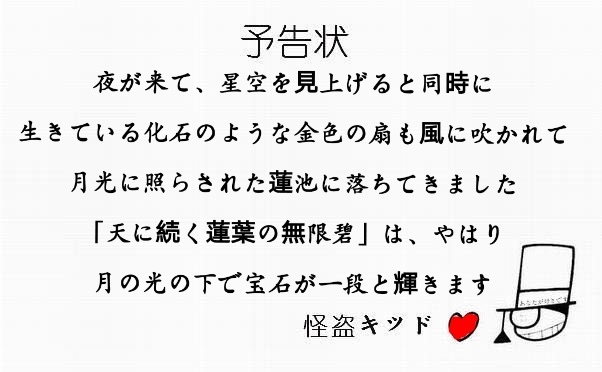 予告状
夜が来て、星空を見上げると同時に
生きている化石のような金色の扇も風に吹かれて
月光に照らされた蓮池に落ちてきました
「天に続く蓮葉の無限碧」は、やはり
月の光の下で宝石が一段と輝きます
あなたが好きです
怪盗キッド